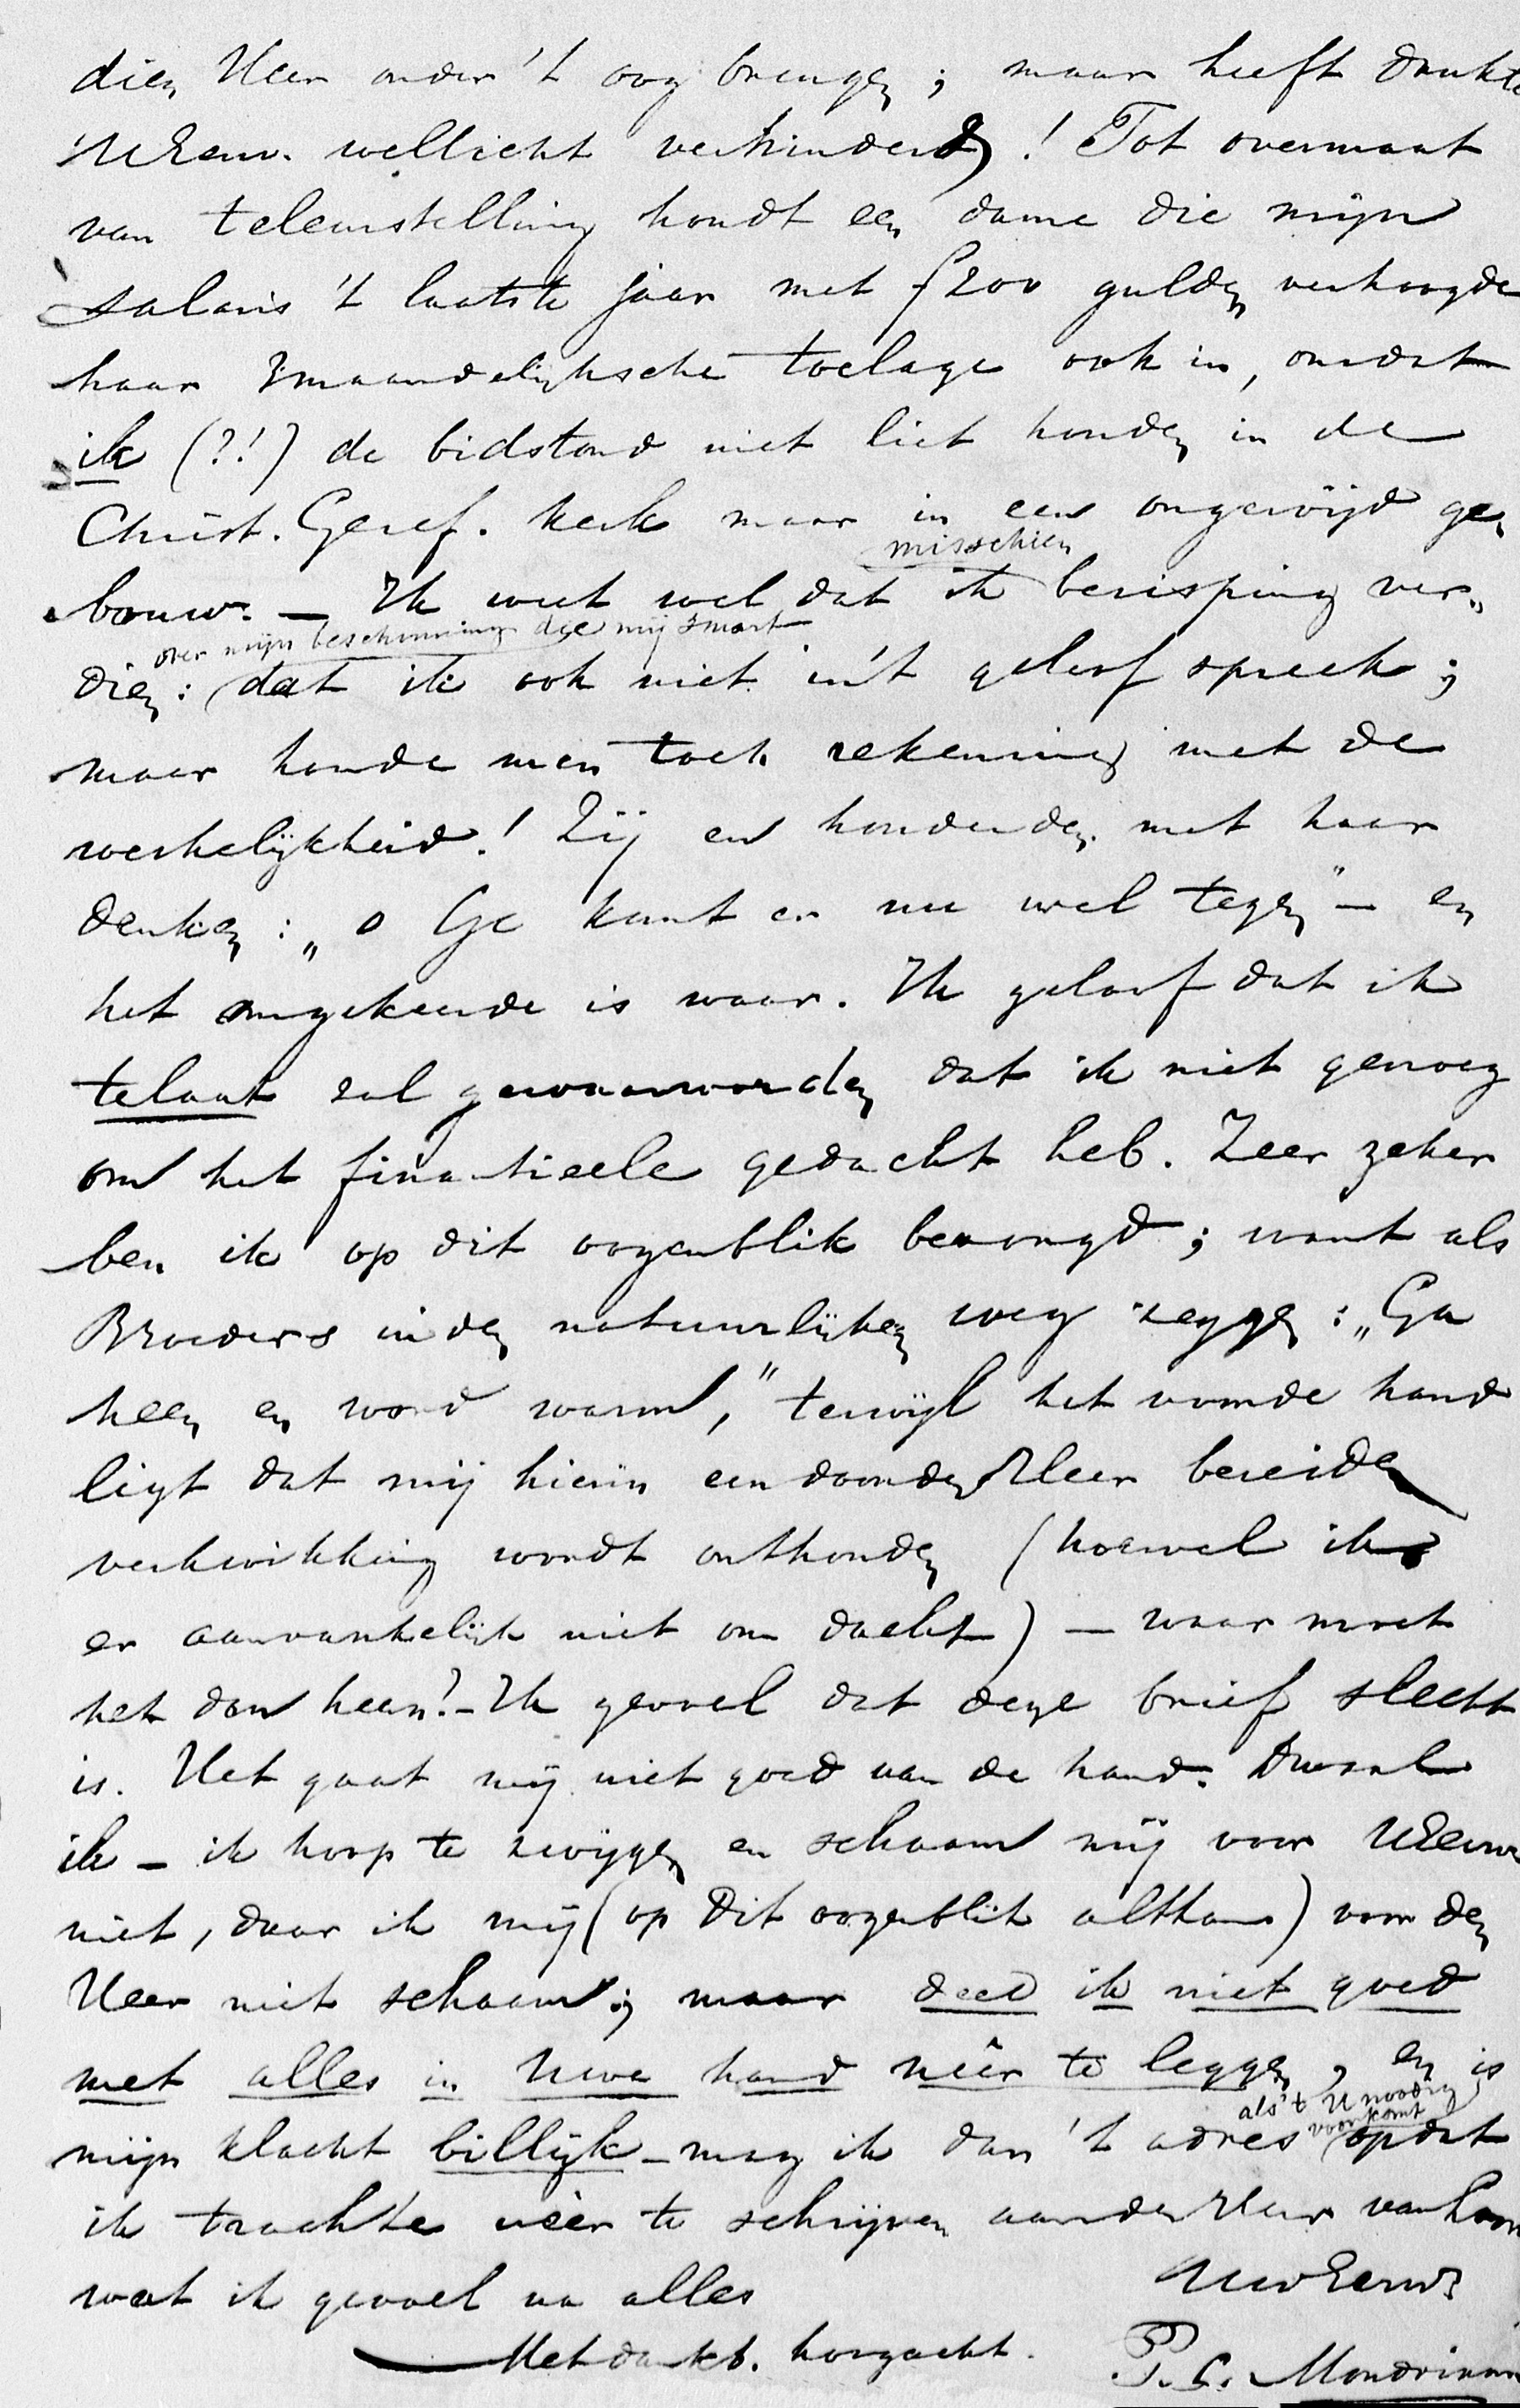 dien Heer onder 't oog brengen; maar heeft drukte
UwEerw. wellicht verhinderd! Tot overmaat
van teleurstelling houdt een dame die mijn
salaris 't laatste jaar met f200 gulden verhoogde
haar 3maandelijksche toelage ook in, omdat
ik (?!) de bidstond niet liet houden in de
Christ. Geref. Kerk maar in een ongewijd ge-
misschien
bouw. — Ik weet wel dat ik berisping ver-
over mijn beschouwing die mij smart
dien: dat ik ook niet in 't geloof spreek;
maar houde men toch rekening met de
werkelijkheid! Zij en honderden met haar
denken: „o Ge kunt er nu wel tegen" — en
het omgekeerde is waar. Ik geloof dat ik
telaat zal gewaarworden dat ik niet genoeg
om het finantieele gedacht heb. Zeer zeker
ben ik op dit oogenblik bezorgd; want als
Broeders in den natuurlijken weg zeggen: „Ga
heen en word warm," terwijl het voor de hand
ligt dat mij hierin een door den Heer bereide
verkwikking wordt onthouden (hoewel ik
er aanvankelijk niet om dacht) — waar moet
het dan heen? — Ik gevoel dat deze brief slecht
is. Het gaat mij niet goed van de hand. Dwaal
ik — ik hoop te zwijgen en schaam mij voor UEerw
niet, daar ik mij (op dit oogenblik althans) voor den
Heer niet schaam; maar deed ik niet goed
met alles in Uwe hand nêer te leggen, en is
als 't U noodig
voorkomt
mijn klacht billijk — mag ik dan 't adres opdat
ik trachte nêer te schrijven aan den Heer van Loon
wat ik gevoel na alles
UwEerw's
Met dankb. hoogacht.
P. C. Mondriaan